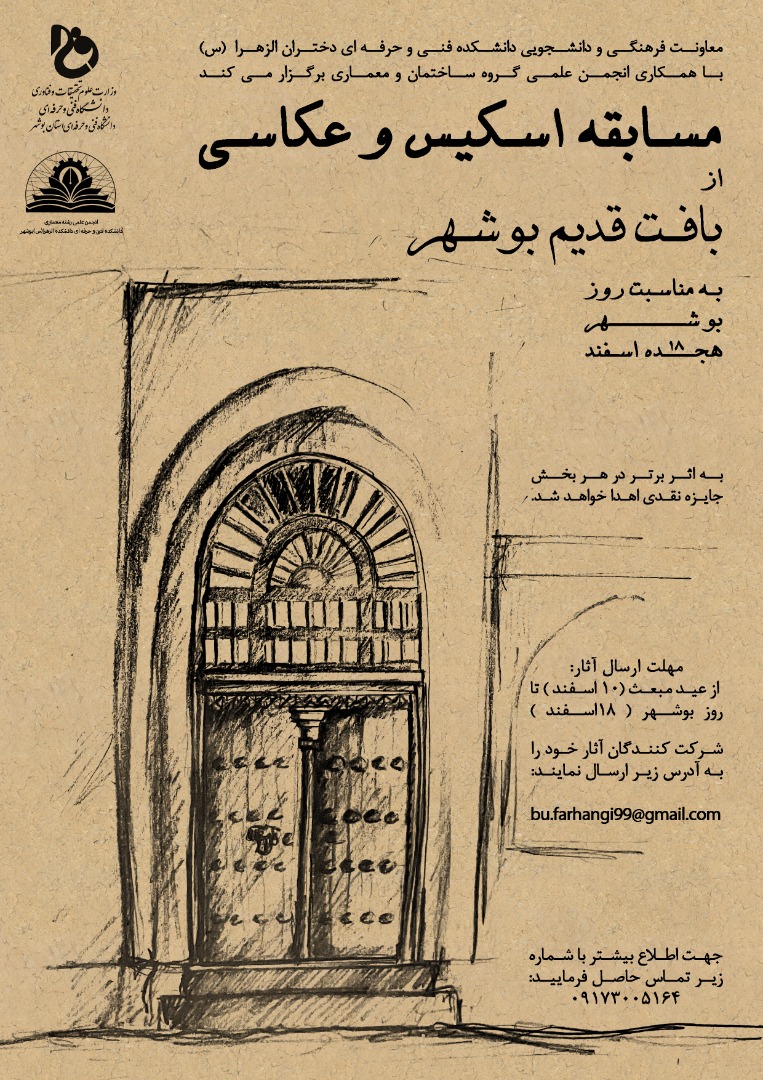 معاونت فرهنگی و دانشجویی دانشکده فنی و حرفه ای دختران الزهرا (س)
با همکاری انجمن علمی گروه ساختمان و معماری برگزار می کند
وزارت علوم تحقیقات و فناوری
دانشگاه فنی و حرفه ای
دانشگاه فنی و حرفه ای استان بوشهر
انجمن علمی رشته معماری
دانشکده فنی و حرفه ای دانشکده الزهرا(س) بوشهر
مسابقه اسکیس و عکاسی
از
بافت قدیم بوشهر
به مناسبت روز
بوشهر
هجده ۱۸ اسفند
به اثر برتر در هر بخش
جایزه نقدی اهدا خواهد شد.
مهلت ارسال آثار:
از عید مبعث (۱۰ اسفند) تا
روز بوشهر ( ۱۸اسفند )
شرکت کنندگان آثار خود را
به آدرس زیر ارسال نمایند:
bu.farhangi99@gmail.com
جهت اطلاع بیشتر با شماره
زیر تماس حاصل فرمایید:
۰۹۱۷۳۰۰۵۱۶۴